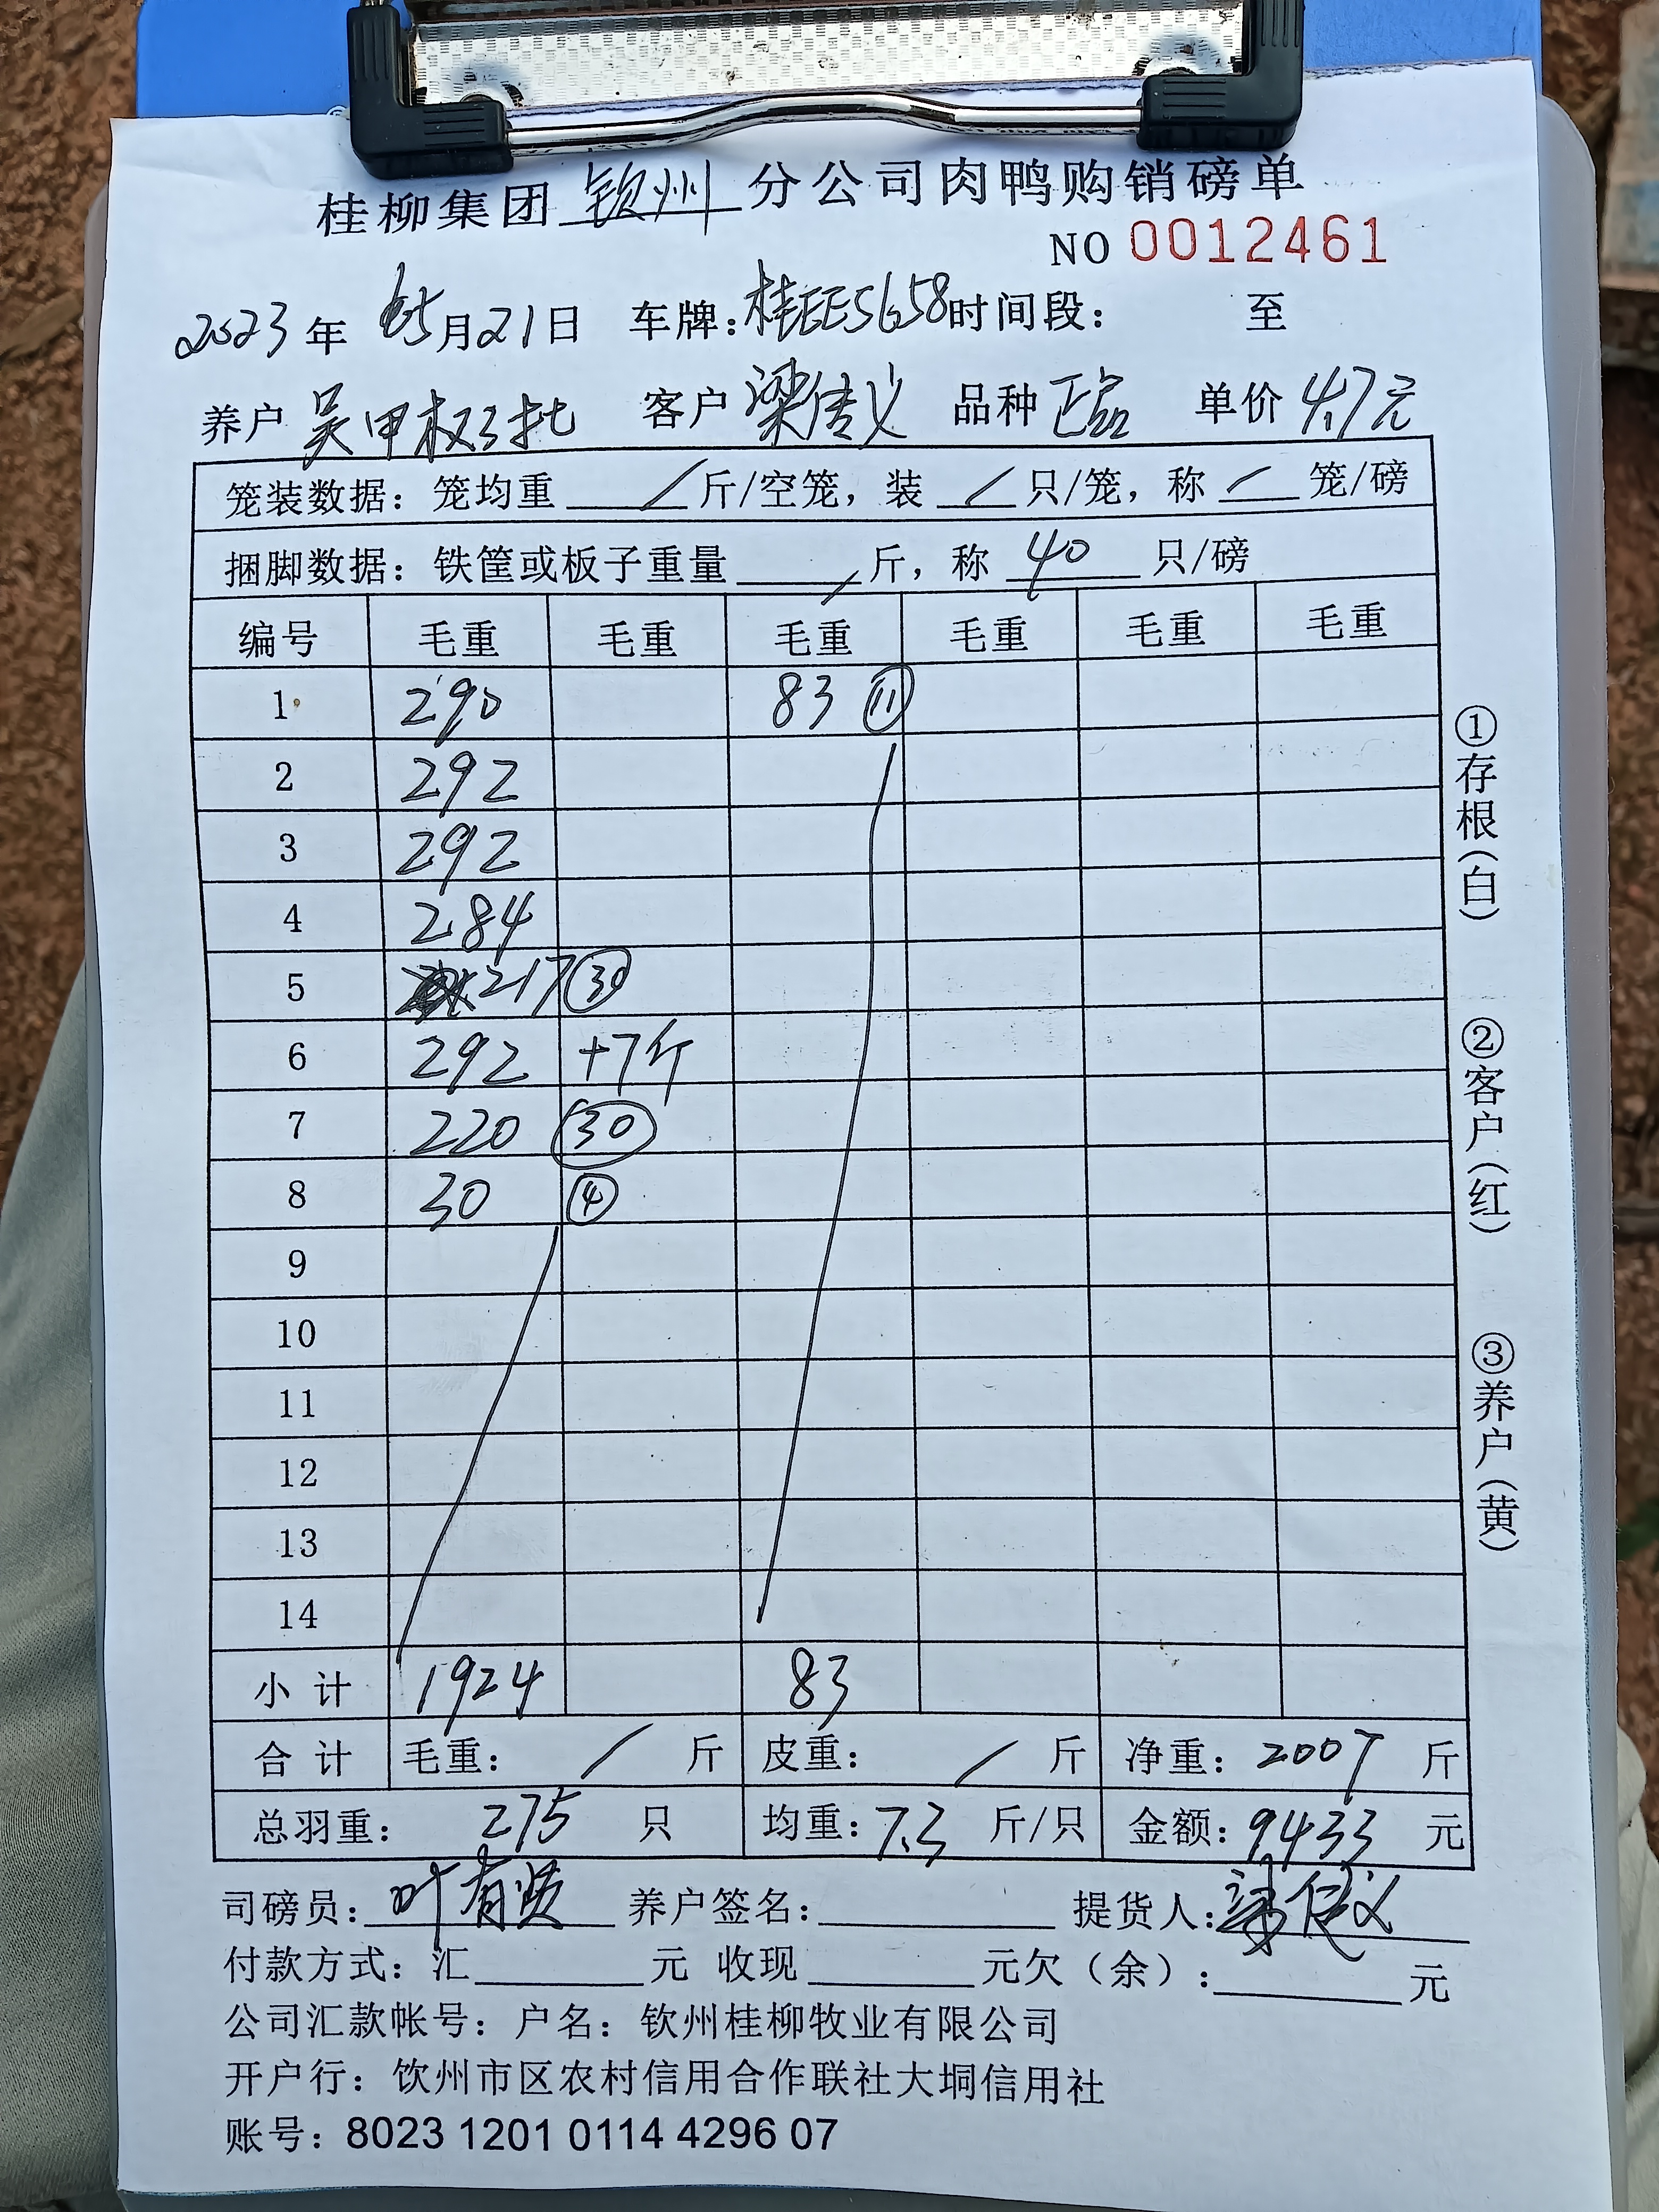 桂柳集团 钦州 分公司肉鸭购销磅单
NO 0012461
2023年 5月21日 车牌:桂EE5658 时间段: 至
养户 吴甲权3批 客户 梁信义 品种 正品 单价 4.7元
笼装数据: 笼均重 / 斤/空笼, 装 / 只/笼, 称 / 笼/磅
捆脚数据: 铁筐或板子重量 / 斤, 称 40 只/磅
编号 毛重 毛重 毛重 毛重 毛重 毛重
1 290 83 ⑪
2 292
3 292
4 284
5 217 ㉚
6 292 +7斤
7 220 ㉚
8 30 ④
9
10
11
12
13
14
小计 1924 83
合计 毛重: / 斤 皮重: / 斤 净重: 2007 斤
总羽重: 275 只 均重: 7.3 斤/只 金额: 9433 元
司磅员: 叶有贤 养户签名: 提货人: 梁信义
付款方式: 汇 元 收现 元欠(余): 元
公司汇款帐号: 户名: 钦州桂柳牧业有限公司
开户行: 钦州市区农村信用合作联社大垌信用社
账号: 8023 1201 0114 4296 07
①存根(白)
②客户(红)
③养户(黄)